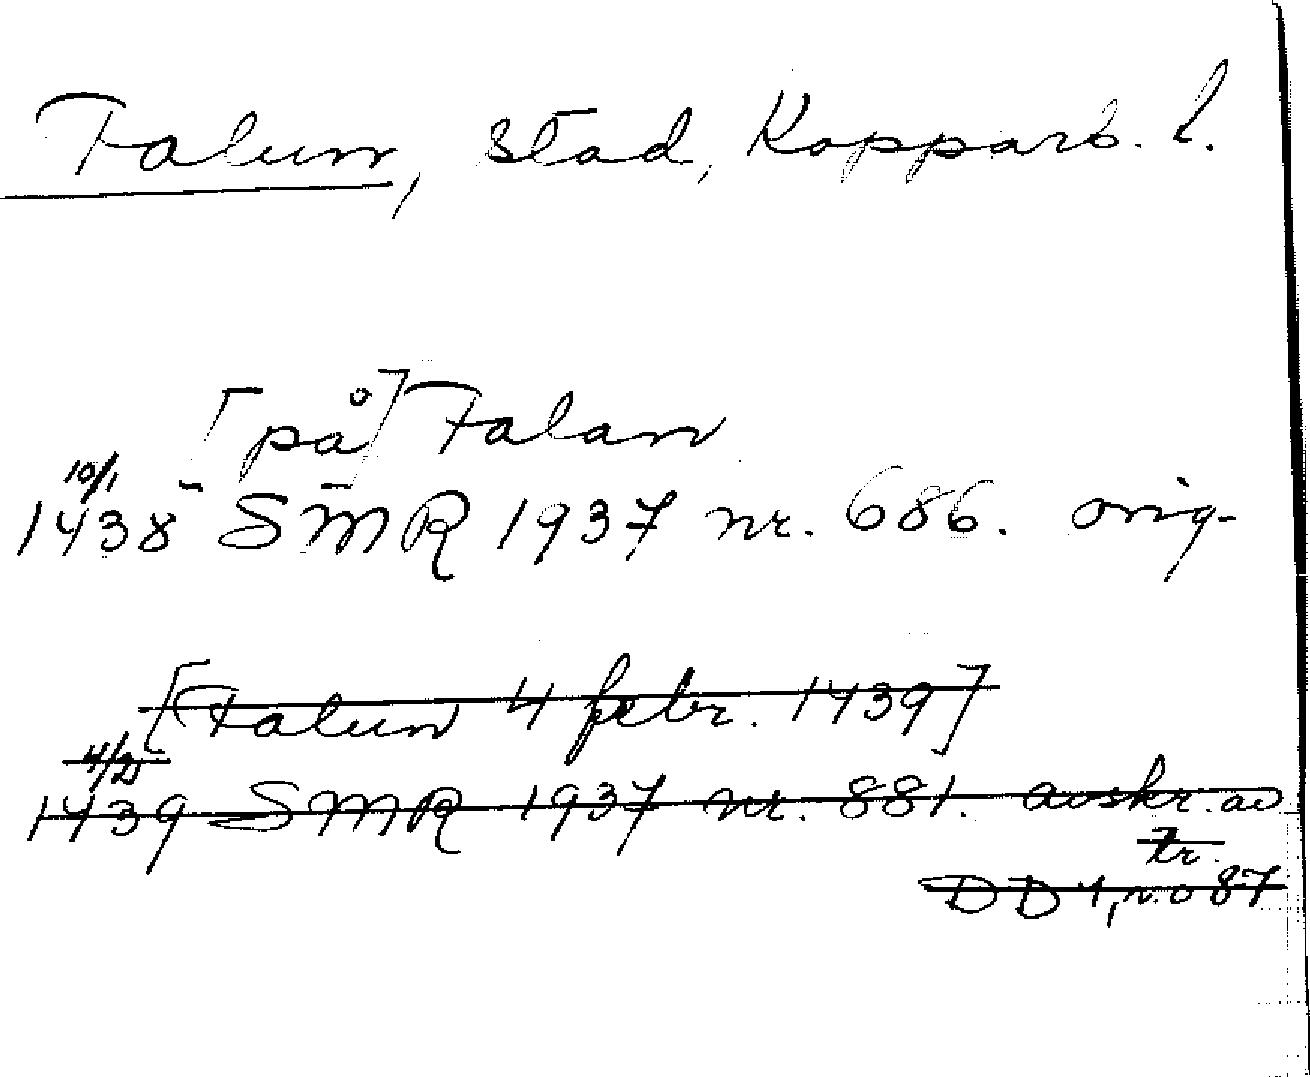 Falun, stad, Kopparb. l.
[på] Falan
10/1
1438 SMR 1937 nr. 686. orig.
[Falun 4 febr. 1439]
4/2
1439 SMR 1937 nr. 881. avskr. av
tr.
DD 1, no 87